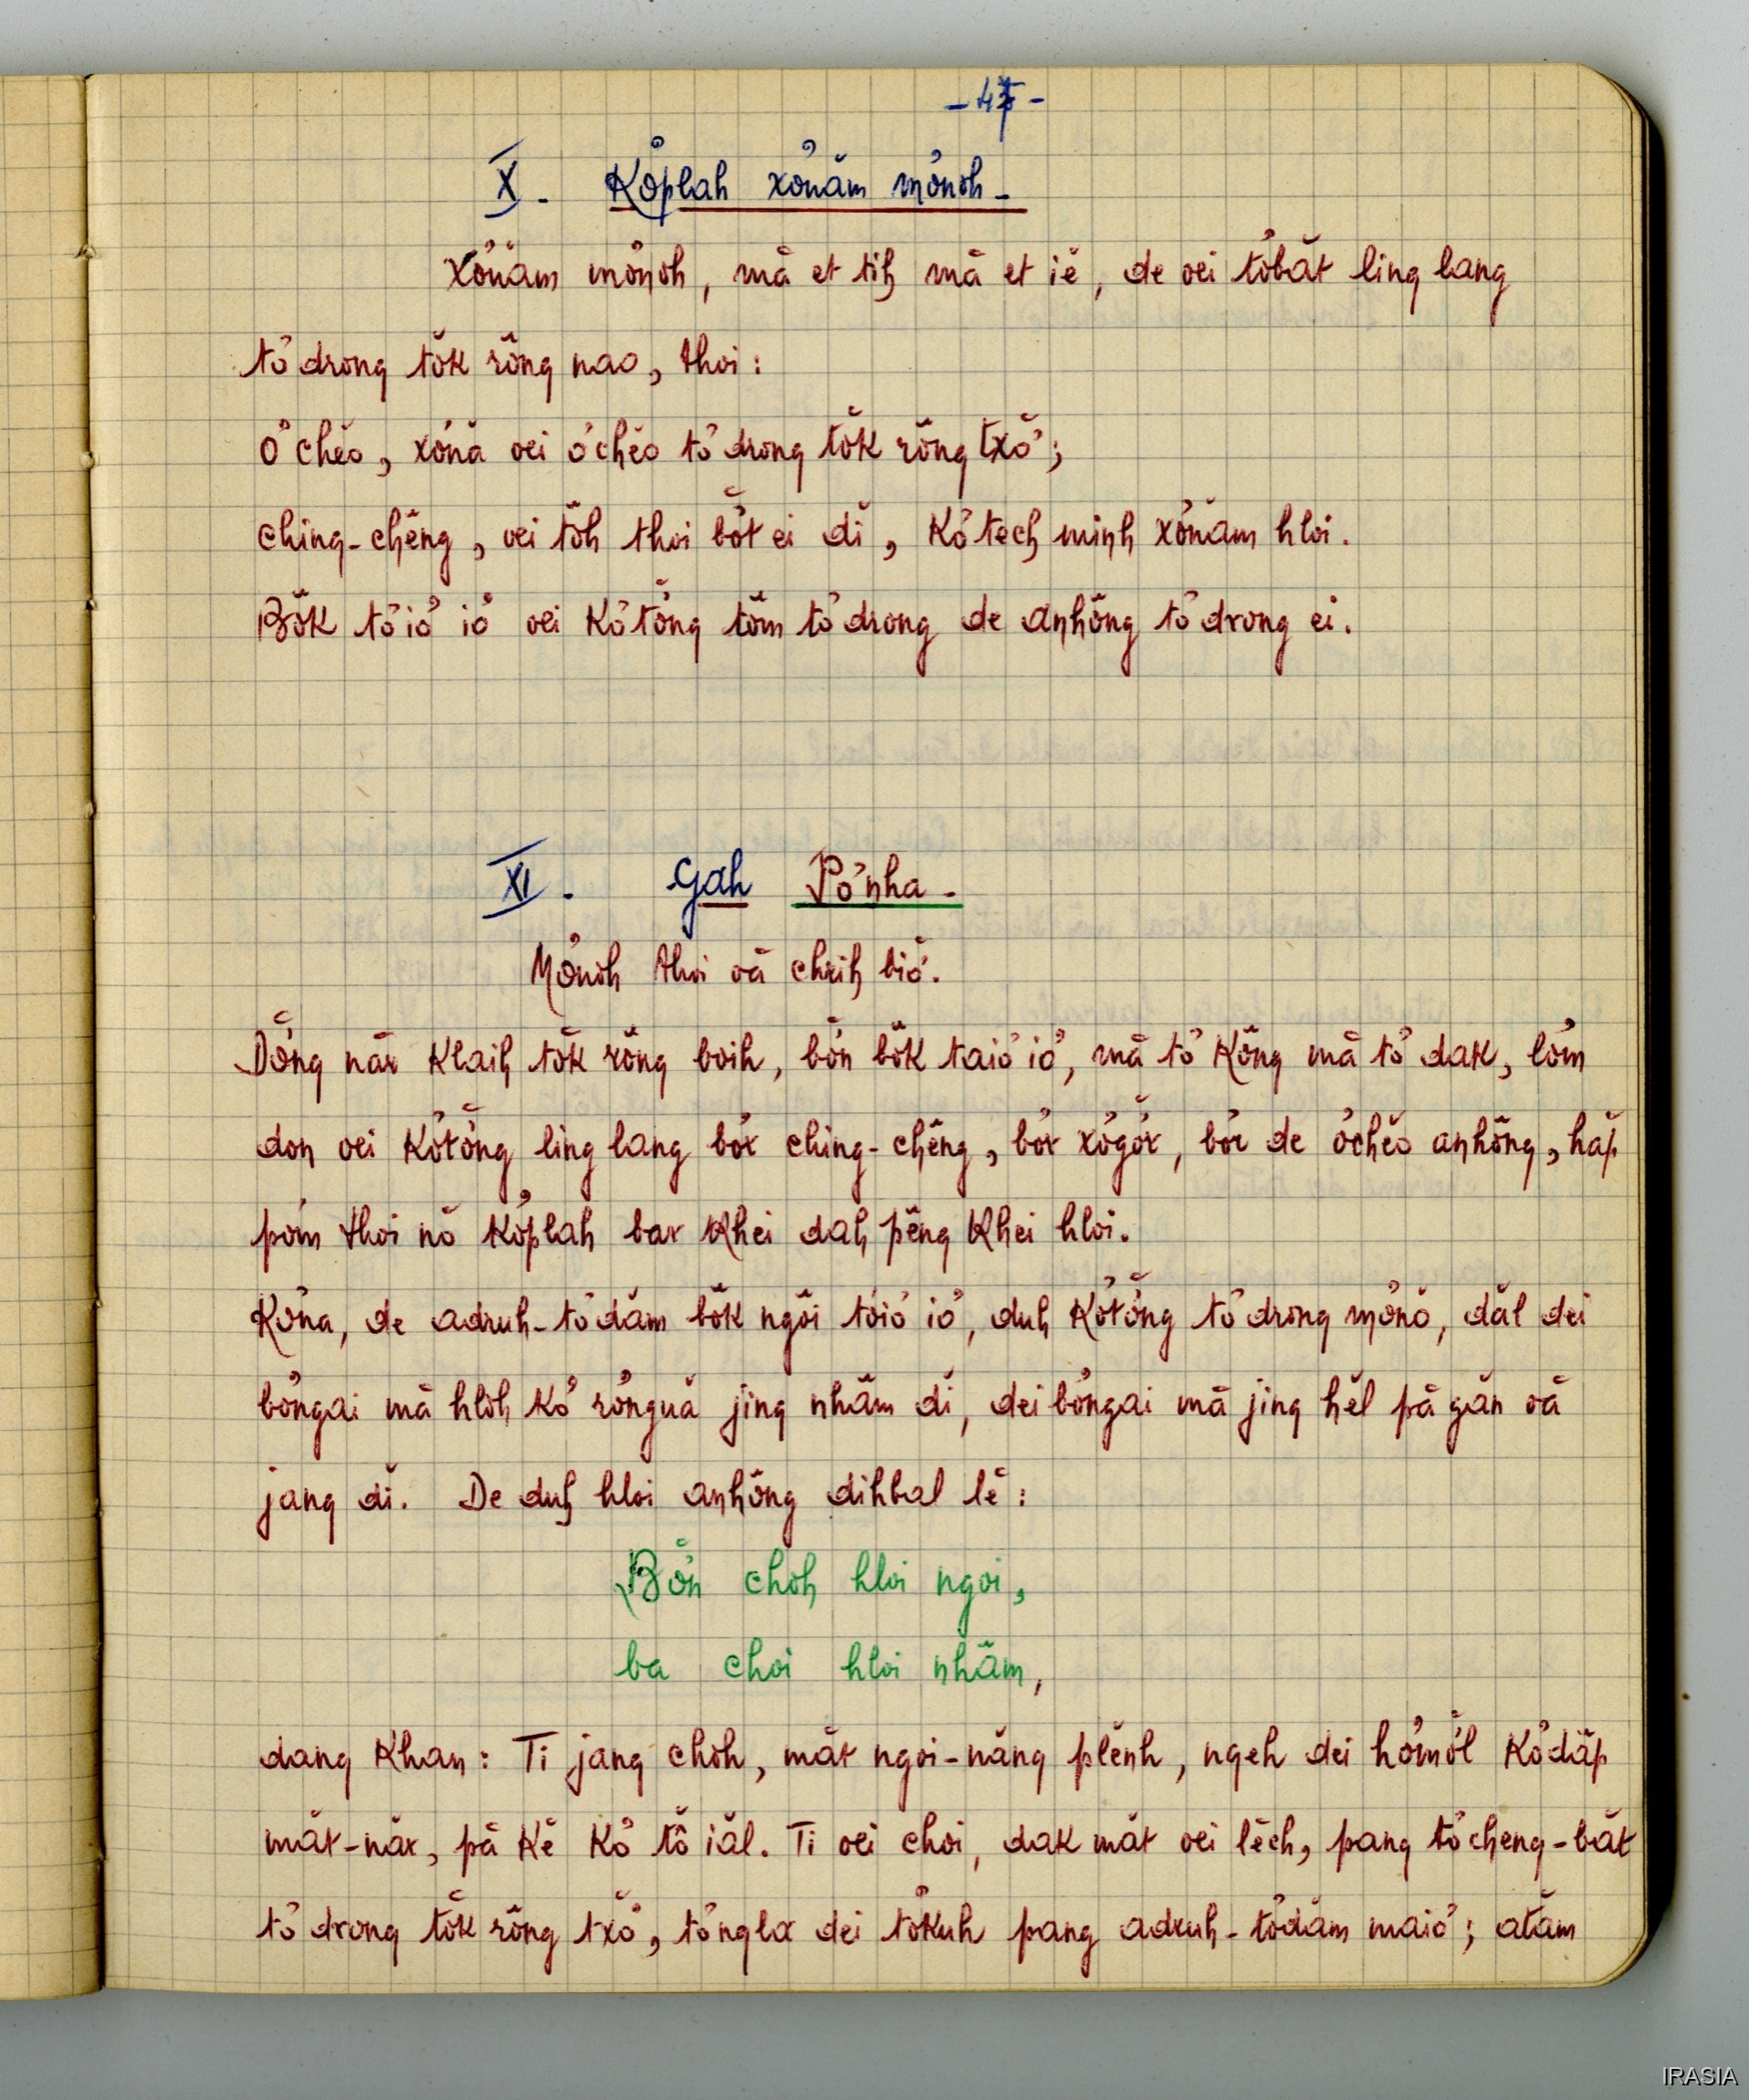 - 47 -
X. Kơ̆plah xơnăm mơnoh -
Xơnăm mơnoh, mă et tih mă et iĕ, de oei tơbăt ling lang
tơdrong tŏk rŏng nao, thoi:
Ơchĕo, xơnă oei ơchĕo tơdrong tŏk rŏng txŏ;
ching-chêng, oei tŏh thoi bơ̆t ei dĭ, kơtech minh xơnăm hloi.
Bŏk tơiơ iơ oei kơtơ̆ng tŏm tơdrong de anhŏng tơdrong ei.
XI. Gah Pơnha -
Mơnoh thoi vă chrih biơ̆.
Dơ̆ng năr klaih tŏk rŏng boih, bơ̆n bŏk taiơ iơ, mă tơ kŏng mă tơ dak, lơm
don oei kơtơ̆ng ling lang bơ̆r ching-chêng, bơ̆r xơgơ̆r, bơ̆r de ơchĕo anhŏng, hăp
pơm thoi nŏ kơplah bar khei dah pêng khei hloi.
Kơna, de adruh-tơdăm bŏk ngôi tơiơ iơ, duh kơtơ̆ng tơdrong mơnŏ, dăl dei
bơngai mă hloh kơ rơnguă jing nhăm dĭ, dei bơngai mă jing hĕl pă găn vă
jang dĭ. De duh hloi anhŏng dihbal lĕ:
Bơ̆n choh hloi ngoi,
ba choi hloi nhăm,
dang khan: Ti jang choh, măt ngoi-năng plĕnh, ngeh dei hơmơ̆l kơdăp
măt-năr, pă kĕ kơ tô iăl. Ti oei choi, dak măt oei lĕch, pang tơcheng-băt
tơdrong tŏk rŏng txŏ, tơngla dei tơkuh pang adruh-tơdăm maiơ; atăm
IRASIA